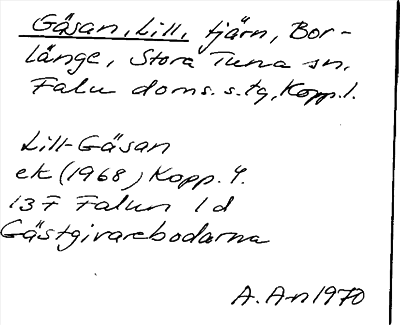 Gåsan, Lill, tjärn, Bor-
länge, Stora Tuna sn,
Falu doms. s. tg, Kopp. l.
Lill-Gåsan
ek (1968) Kopp. 4.
13 F Falun 1 d
Gästgivarebodarna
A. An 1970